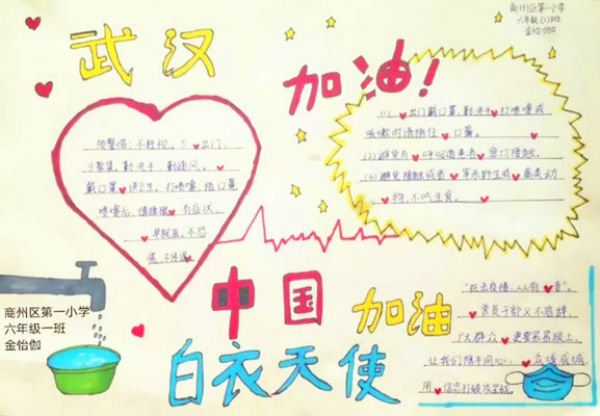 商州区第一小学
六年级(1)班
金怡伽
武汉
加油!
预警悟:不轻视,少出门,
少聚集,勤洗手,勤通风。
戴口罩 讲卫生,打喷嚏,捂口鼻
喷嚏后,慎揉眼 有症状,
早就医,不恐
慌,不传谣
(1) 出门戴口罩,勤洗手 打喷嚏或
咳嗽时请捂住 口鼻。
(2)避免与 呼吸道患者 密切接触,
(3)避免接触或者 野生或 禽类动
物,不吃生食。
中国
加油
白衣天使
商州区第一小学
六年级一班
金怡伽
"抗击疫情,人人有责"。
党员干部义不容辞,
广大群众 更要紧紧跟上,
让我们携手同心, 众志成城,
用 信念打破攻坚战。